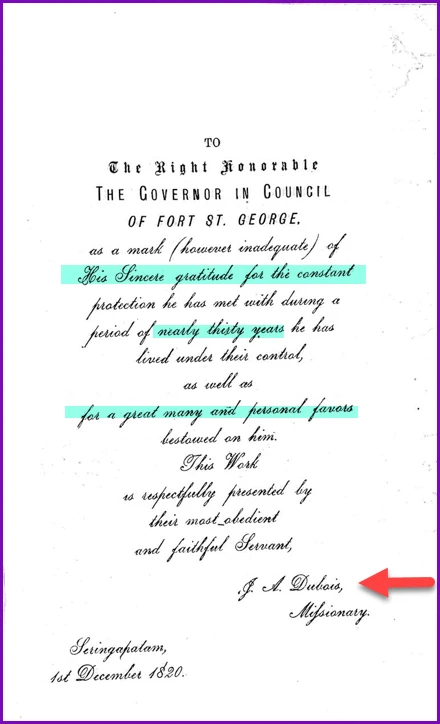 TO
The Right Honorable
THE GOVERNOR IN COUNCIL
OF FORT ST. GEORGE,
as a mark (however inadequate) of
His Sincere gratitude for the constant
protection he has met with during a
period of nearly thirty years he has
lived under their control,
as well as
for a great many and personal favors
bestowed on him.
This Work
is respectfully presented by
their most obedient
and faithful Servant,
J. A. Dubois,
Missionary.
Seringapatam,
1st December 1820.